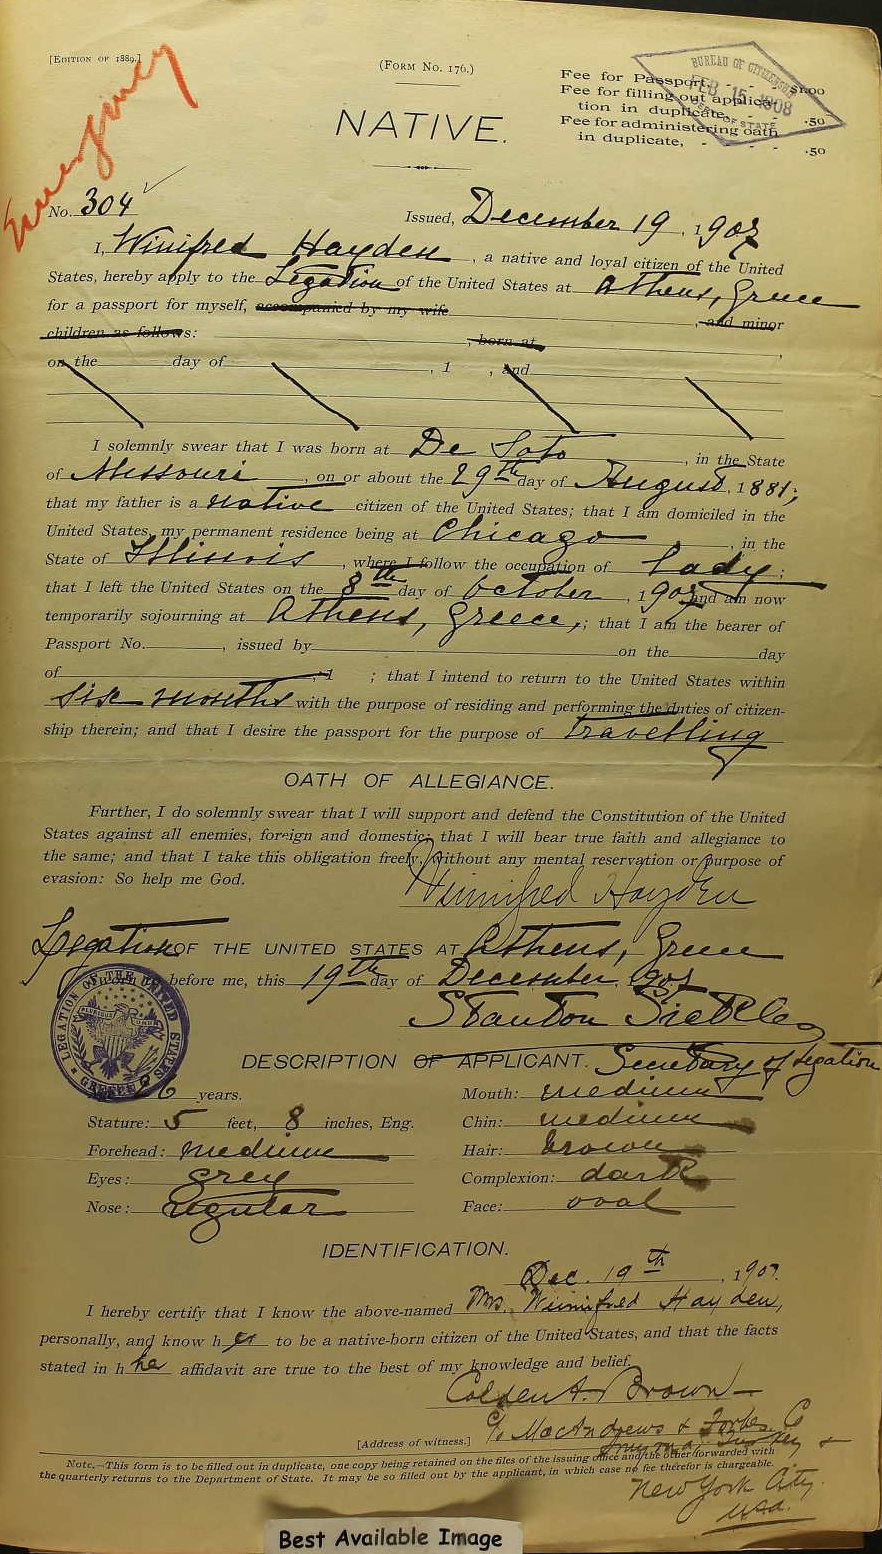 [Edition of 1889.]
Emergency
(Form No. 176.)
Fee for Passport, - - - $1.00
Fee for filling out applica-
tion in duplicate, - - .50
Fee for administering oath
in duplicate, - - - .50
BUREAU OF CITIZENSHIP
FEB 15 1908
DEP'T OF STATE
NATIVE.
No. 304
Issued, December 19, 1907
I, Winifred Hayden, a native and loyal citizen of the United
States, hereby apply to the Legation of the United States at Athens, Greece
for a passport for myself, accompanied by my wife , and minor
children as follows: , born at ,
on the day of , 1 , and
I solemnly swear that I was born at De Soto, in the State
of Missouri, on or about the 29th day of August, 1881;
that my father is a native citizen of the United States; that I am domiciled in the
United States, my permanent residence being at Chicago, in the
State of Illinois, where I follow the occupation of lady;
that I left the United States on the 8th day of October, 1907 and am now
temporarily sojourning at Athens, Greece,; that I am the bearer of
Passport No. , issued by on the day
of , 1 ; that I intend to return to the United States within
six months with the purpose of residing and performing the duties of citizen-
ship therein; and that I desire the passport for the purpose of travelling
OATH OF ALLEGIANCE.
Further, I do solemnly swear that I will support and defend the Constitution of the United
States against all enemies, foreign and domestic; that I will bear true faith and allegiance to
the same; and that I take this obligation freely, without any mental reservation or purpose of
evasion: So help me God.
Winnifred Hayden
Legation OF THE UNITED STATES AT Athens, Greece
Sworn to before me, this 19th day of December, 1907
Stanton Sickles
Secretary of Legation
LEGATION OF THE UNITED STATES
GREECE
DESCRIPTION OF APPLICANT.
26 years.
Mouth: medium
Stature: 5 feet, 8 inches, Eng.
Chin: medium
Forehead: medium
Hair: brown
Eyes: grey
Complexion: dark
Nose: regular
Face: oval
IDENTIFICATION.
Dec. 19th, 1907.
I hereby certify that I know the above-named Mrs. Winnifred Hayden,
personally, and know her to be a native-born citizen of the United States, and that the facts
stated in h her affidavit are true to the best of my knowledge and belief.
Colden A. Brown
[Address of witness.] c/o MacAndrews & Forbes Co
Smyrna, Turkey &
New York City.
USA.
Note.—This form is to be filled out in duplicate, one copy being retained on the files of the issuing office and the other forwarded with
the quarterly returns to the Department of State. It may be so filled out by the applicant, in which case no fee therefor is chargeable.
Best Available Image